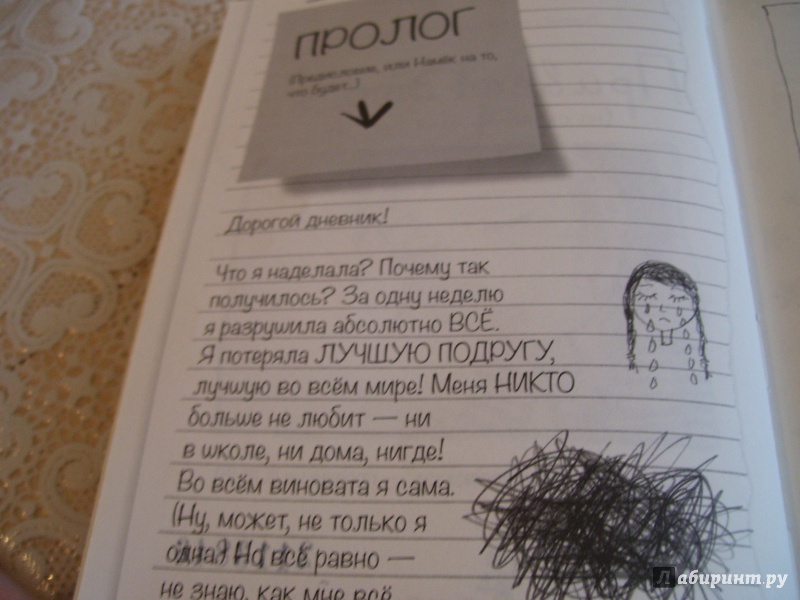 ПРОЛОГ
(Предисловие, или Намёк на то,
что будет...)
Дорогой дневник!
Что я наделала? Почему так
получилось? За одну неделю
я разрушила абсолютно ВСЁ.
Я потеряла ЛУЧШУЮ ПОДРУГУ,
лучшую во всём мире! Меня НИКТО
больше не любит — ни
в школе, ни дома, нигде!
Во всём виновата я сама.
(Ну, может, не только я
одна? Но всё равно —
не знаю, как мне всё
Лабиринт.ру